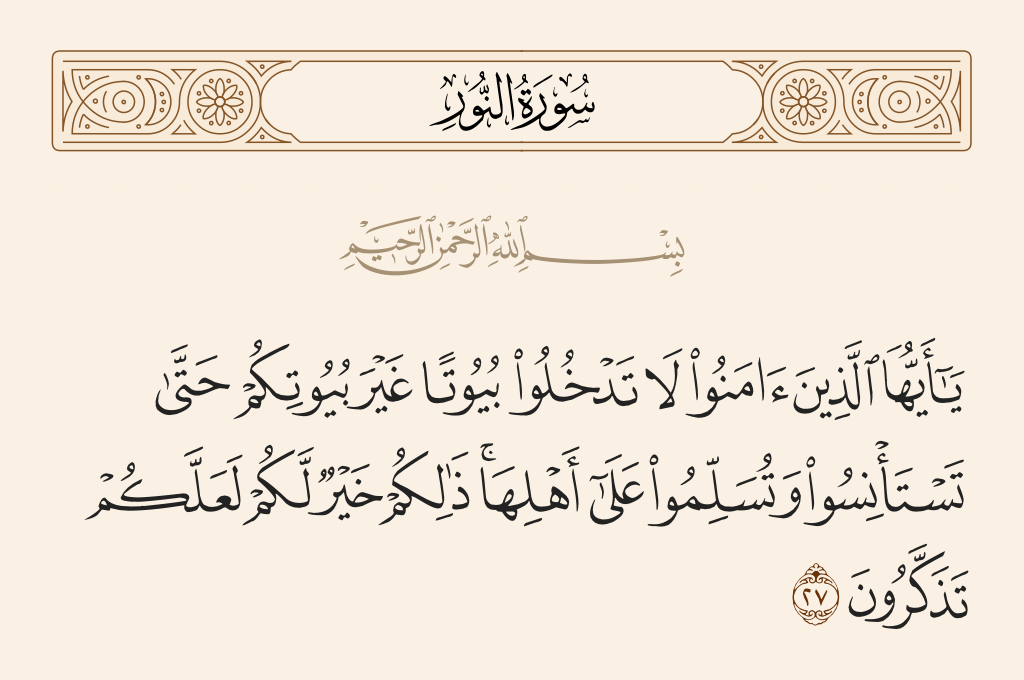 سُورَةُ النُّورِ
بِسْمِ ٱللَّهِ ٱلرَّحْمَٰنِ ٱلرَّحِيمِ
يَـٰٓأَيُّهَا ٱلَّذِينَ ءَامَنُوا۟ لَا تَدْخُلُوا۟ بُيُوتًا غَيْرَ بُيُوتِكُمْ حَتَّىٰ
تَسْتَأْنِسُوا۟ وَتُسَلِّمُوا۟ عَلَىٰٓ أَهْلِهَا ۚ ذَٰلِكُمْ خَيْرٌ لَّكُمْ لَعَلَّكُمْ
تَذَكَّرُونَ ٢٧